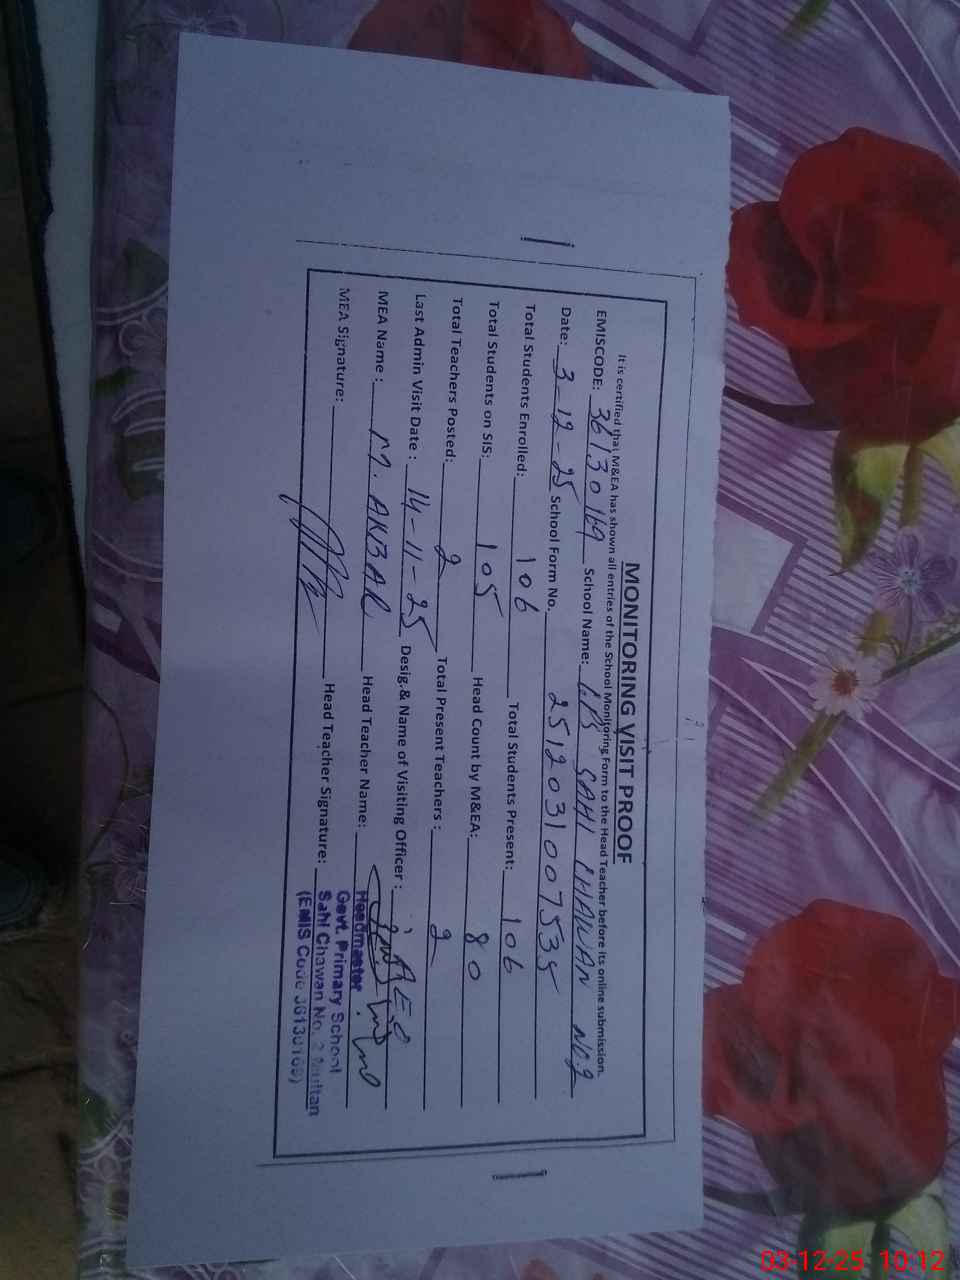 MONITORING VISIT PROOF
It is certified that M&EA has shown all entries of the School Monitoring Form to the Head Teacher before its online submission.
EMISCODE: 36130169 School Name: GPS SAHI CHAWAN NO.2
Date: 3-12-25 School Form No. 2512031007535
Total Students Enrolled: 106 Total Students Present: 106
Total Students on SIS: 105 Head Count by M&EA: 80
Total Teachers Posted: 2 Total Present Teachers : 2
Last Admin Visit Date : 14-11-25 Desig.& Name of Visiting Officer : AEO
MEA Name : M. AKBAR Head Teacher Name:
MEA Signature: Head Teacher Signature:
Headmaster
Govt. Primary School
Sahi Chawan No. 2 Multan
(EMIS Code 36130169)
03-12-25 10:12